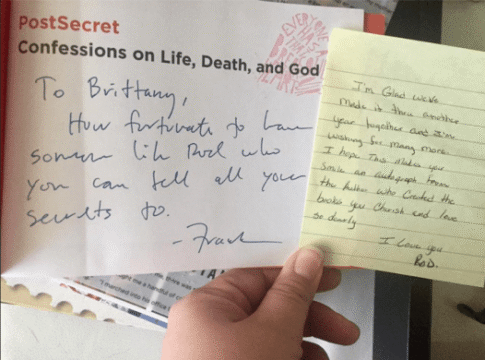 PostSecret
Confessions on Life, Death, and God
EVERYONE
HAS
THAT
BREAK
HEART
To Brittany,
How fortunate to have
someone like Rod who
you can tell all your
secrets to.
- Frank
I'm Glad we've
made it thru another
year together and I'm
wishing for many more.
I hope This Makes you
Smile an autograph from
the Author who Created the
books you Cherish and love
so dearly
I Love you
RoD.